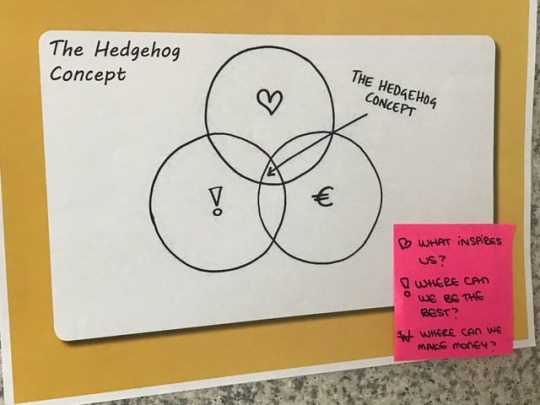 The Hedgehog
Concept
THE HEDGEHOG
CONCEPT
!
€
♡ WHAT INSPIRES
US?
! WHERE CAN
WE BE THE
BEST?
₩ WHERE CAN WE
MAKE MONEY?